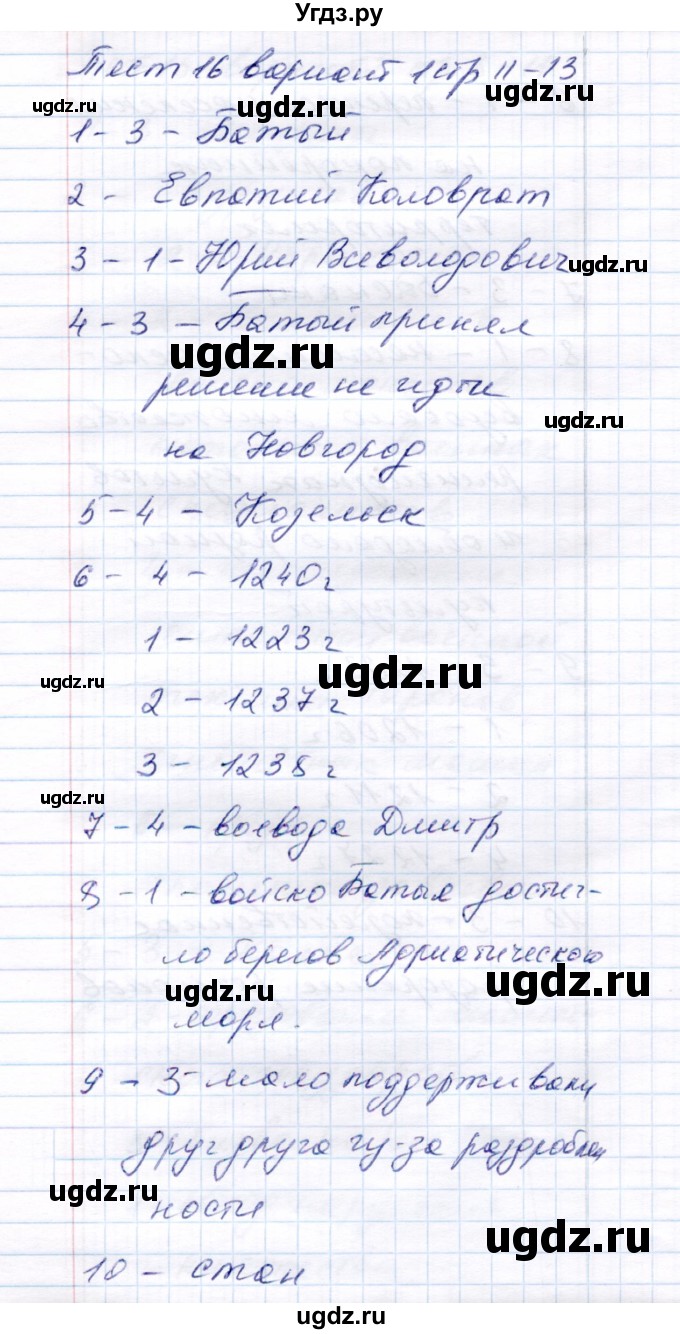 Угдз.ру
Тест 16 вариант 1 стр 11-13
ugdz.ru
ugdz.ru
ugdz.ru
1 - 3 - Батый
2 - Евпатий Коловрат
3 - 1 - Юрий Всеволодович
ugdz.ru
4 - 3 - Батый принял
ugdz.ru
решение не идти
ugdz.ru
на Новгород
5 - 4 - Козельск
6 - 4 - 1240г
1 - 1223г
ugdz.ru
ugdz.ru
2 - 1237г
3 - 1238г
ugdz.ru
7 - 4 - воевода Дмитр
8 - 1 - войско Батыя достиг-
ло берегов Адриатического
ugdz.ru
ugdz.ru
моря.
9 - 3 - мало поддерживали
друг друга из-за раздроблен
ugdz.ru
ности
ugdz.ru
10 - стан
ugdz.ru